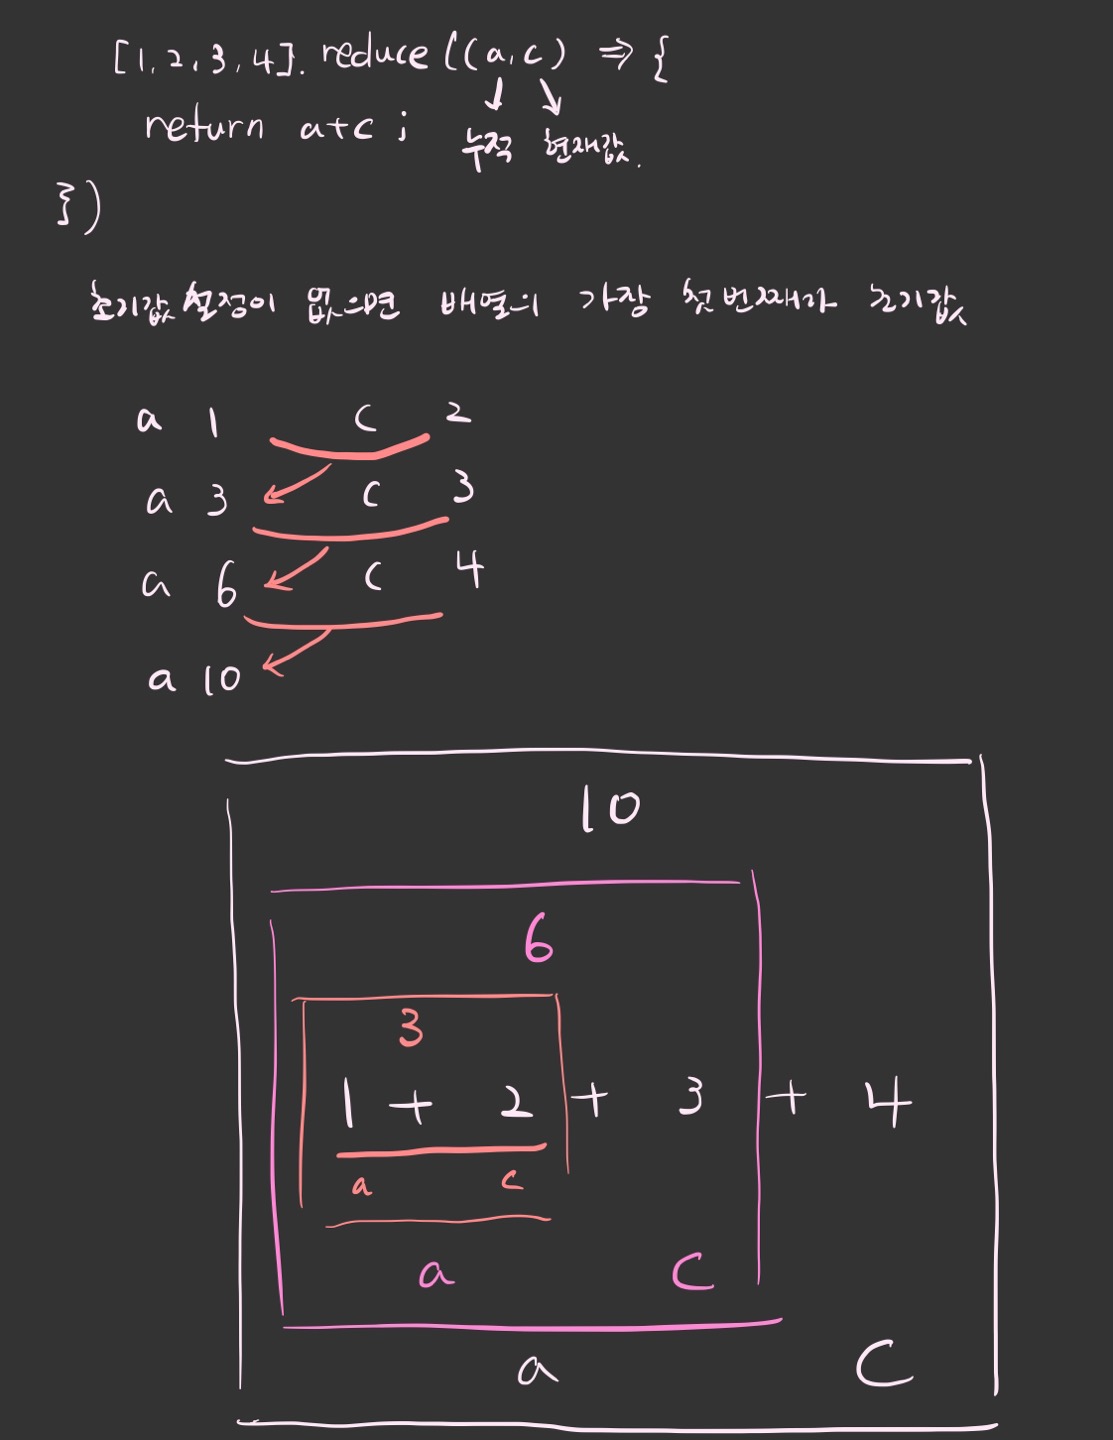 [1, 2, 3, 4]. reduce ((a, c) => {
return a+c ;
누적 현재값.
})
초기값 설정이 없으면 배열의 가장 첫번째가 초기값
a 1 c 2
a 3 c 3
a 6 c 4
a 10
10
6
3
1 + 2 + 3 + 4
a c
a c
a c